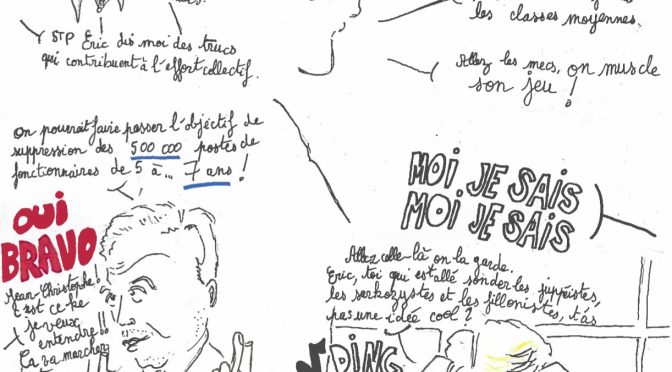 les classes moyennes.
STP Eric dis moi des trucs
qui contribuent à l'effort collectif.
Allez les mecs, on muscle
son jeu !
On pourrait faire passer l'objectif de
suppression des 500 000 postes de
fonctionnaires de 5 à... 7 ans !
OUI
BRAVO
Jean-Christophe !
C'est ce ke
je veux
entendre !!
Ça va marcher
MOI JE SAIS
MOI JE SAIS
Allez celle-là on la garde.
Eric, toi qui est allé sonder les juppéistes,
les sarkozystes et les fillonistes, t'as
pas une idée cool ?
DING